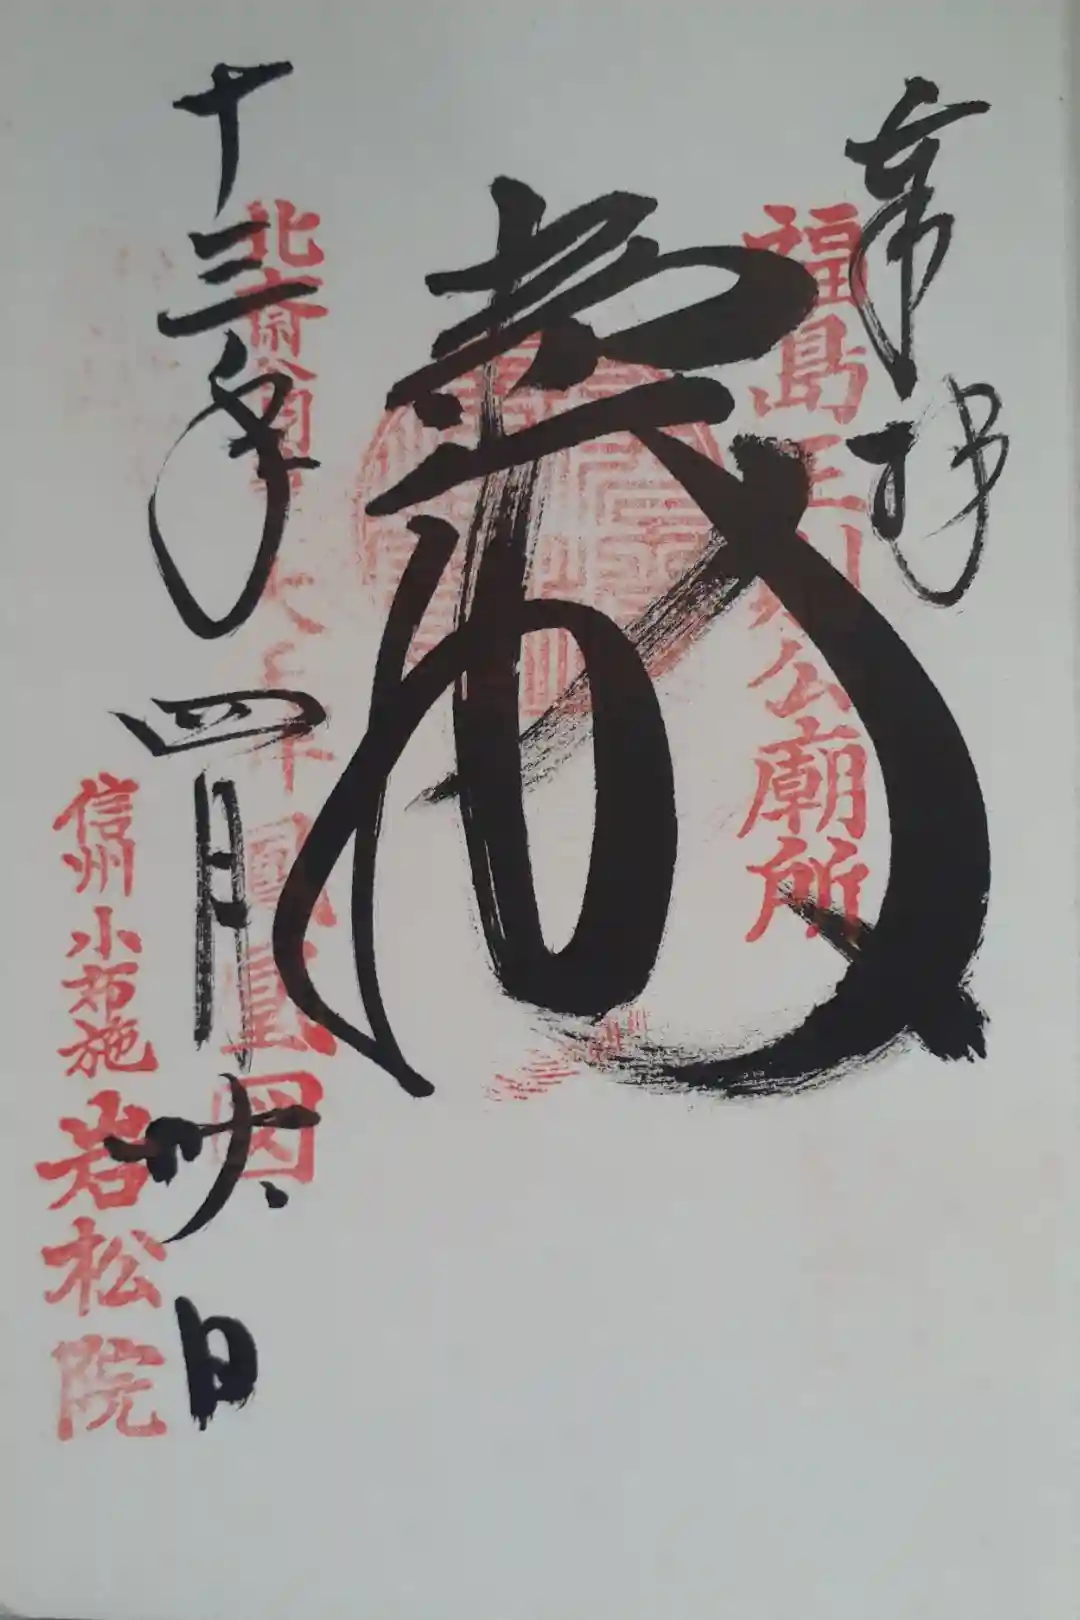 奉拝
福島正則公廟所
蔵
北斎公肉筆
大天井鳳凰図
十三年四月廿六日
信州小布施岩松院